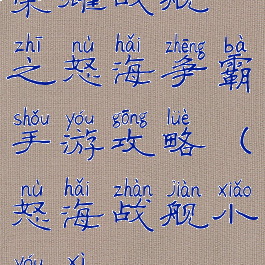 荣耀战舰
zhī nù hǎi zhēng bà
之怒海争霸
shǒu yóu gōng lüè
手游攻略（
nù hǎi zhàn jiàn xiǎo
怒海战舰小
yóu xì